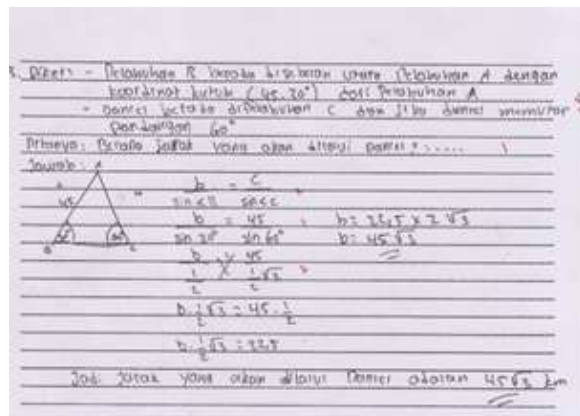 Diket: - Pelabuhan B berada disebelah utara Pelabuhan A dengan
koordinat kutub (45, 30°) dari Pelabuhan A
- Daniel berada dipelabuhan C dan jika daniel memutar
pandangan 60°
Ditanya: Berapa jarak yang akan dilalui Daniel?.....
Jawab:
A
45
B C
b = c
sin<B sin<C
b = 45 b = 22,5 × 2√3
sin 30° sin 60° b = 45√3
b × 45
1/2 1/2√3
b.1/2√3 = 45.1/2
b.1/2√3 = 22,5
Jadi jarak yang akan dilalui Daniel adalah 45√3 km